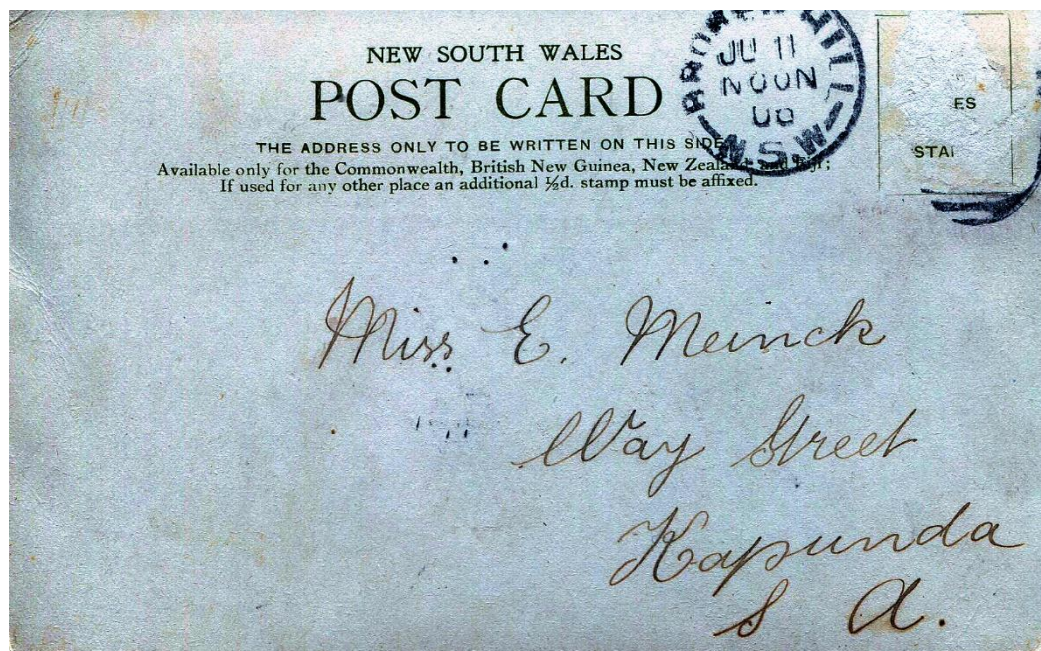 NEW SOUTH WALES
POST CARD
THE ADDRESS ONLY TO BE WRITTEN ON THIS SIDE
Available only for the Commonwealth, British New Guinea, New Zealand, and Fiji;
If used for any other place an additional ½d. stamp must be affixed.
BROKEN HILL
JU 11
NOON
06
N.S.W
ES
STA
Miss E. Meinck
Way Street
Kapunda
S A.